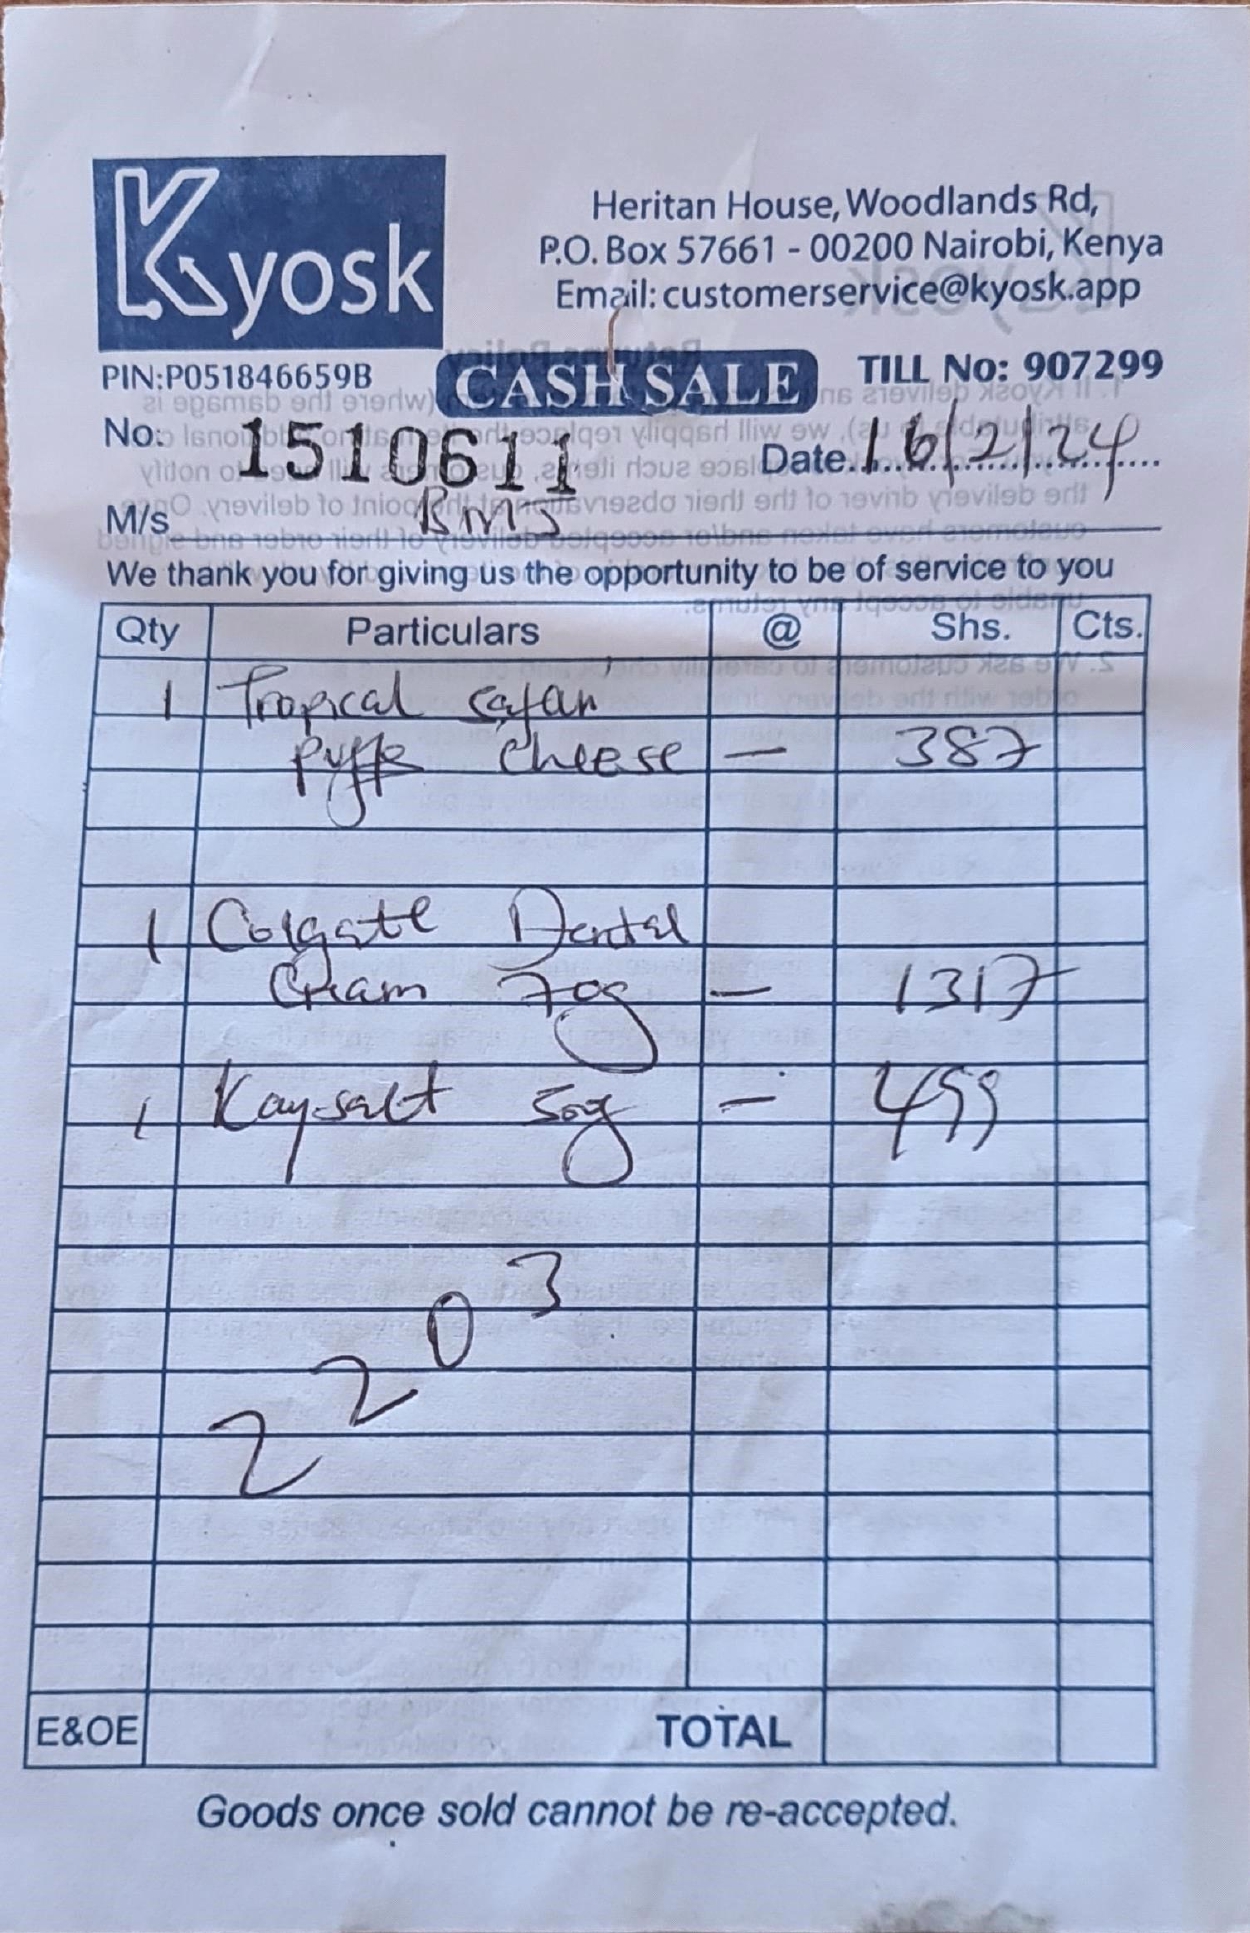 Kyosk
Heritan House, Woodlands Rd,
P.O. Box 57661 - 00200 Nairobi, Kenya
Email: customerservice@kyosk.app
PIN:P051846659B
CASH SALE
TILL No: 907299
No. 1510611
Date. 16/2/24
M/s BMS
We thank you for giving us the opportunity to be of service to you
Qty Particulars @ Shs. Cts.
1 Tropical safari
puffs cheese — 387
1 Colgate Dental
Cream 70g — 1317
1 Kaysalt 50g — 499
2203
E&OE TOTAL
Goods once sold cannot be re-accepted.